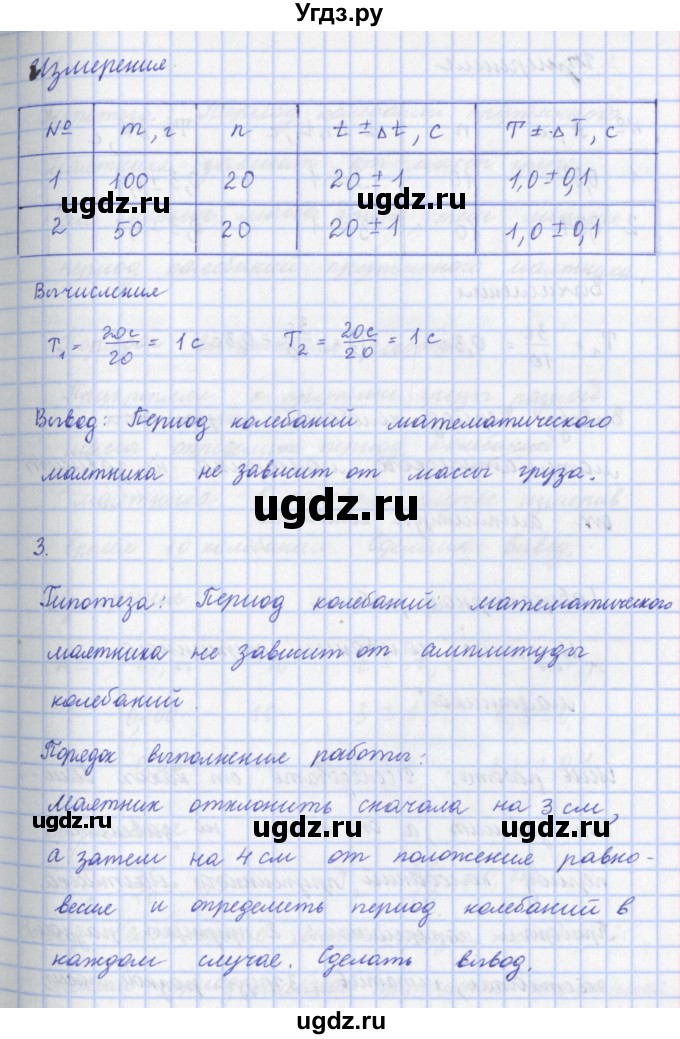 Угдз.ру
Измерения.
№ m, г n t ± Δt, с T ± ΔT, с
1 100 20 20 ± 1 1,0 ± 0,1
ugdz.ru ugdz.ru
2 50 20 20 ± 1 1,0 ± 0,1
Вычисления
T₁ = 20с/20 = 1 с T₂ = 20с/20 = 1 с
Вывод: Период колебаний математического
маятника не зависит от массы груза.
ugdz.ru
3.
Гипотеза: Период колебаний математического
маятника не зависит от амплитуды
колебаний.
Порядок выполнение работы:
Маятник отклонить сначала на 3 см,
ugdz.ru ugdz.ru ugdz.ru
а затем на 4 см от положения равно-
весие и определеть период колебаний в
каждом случае. Сделать вывод.
ugdz.ru